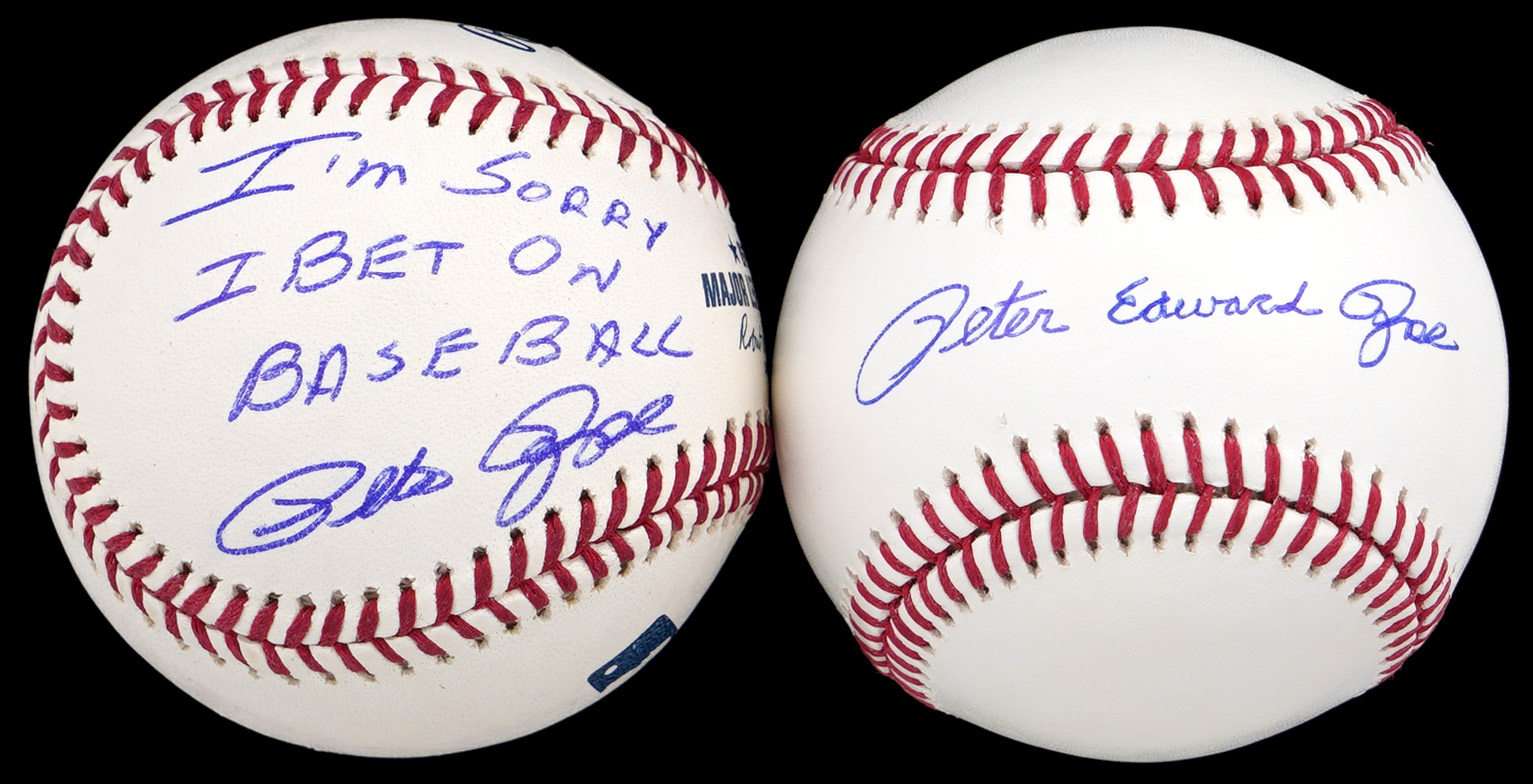 I'm SORRY
I BET ON
BASEBALL
Pete Rose
MAJOR
Peter Edward Rose